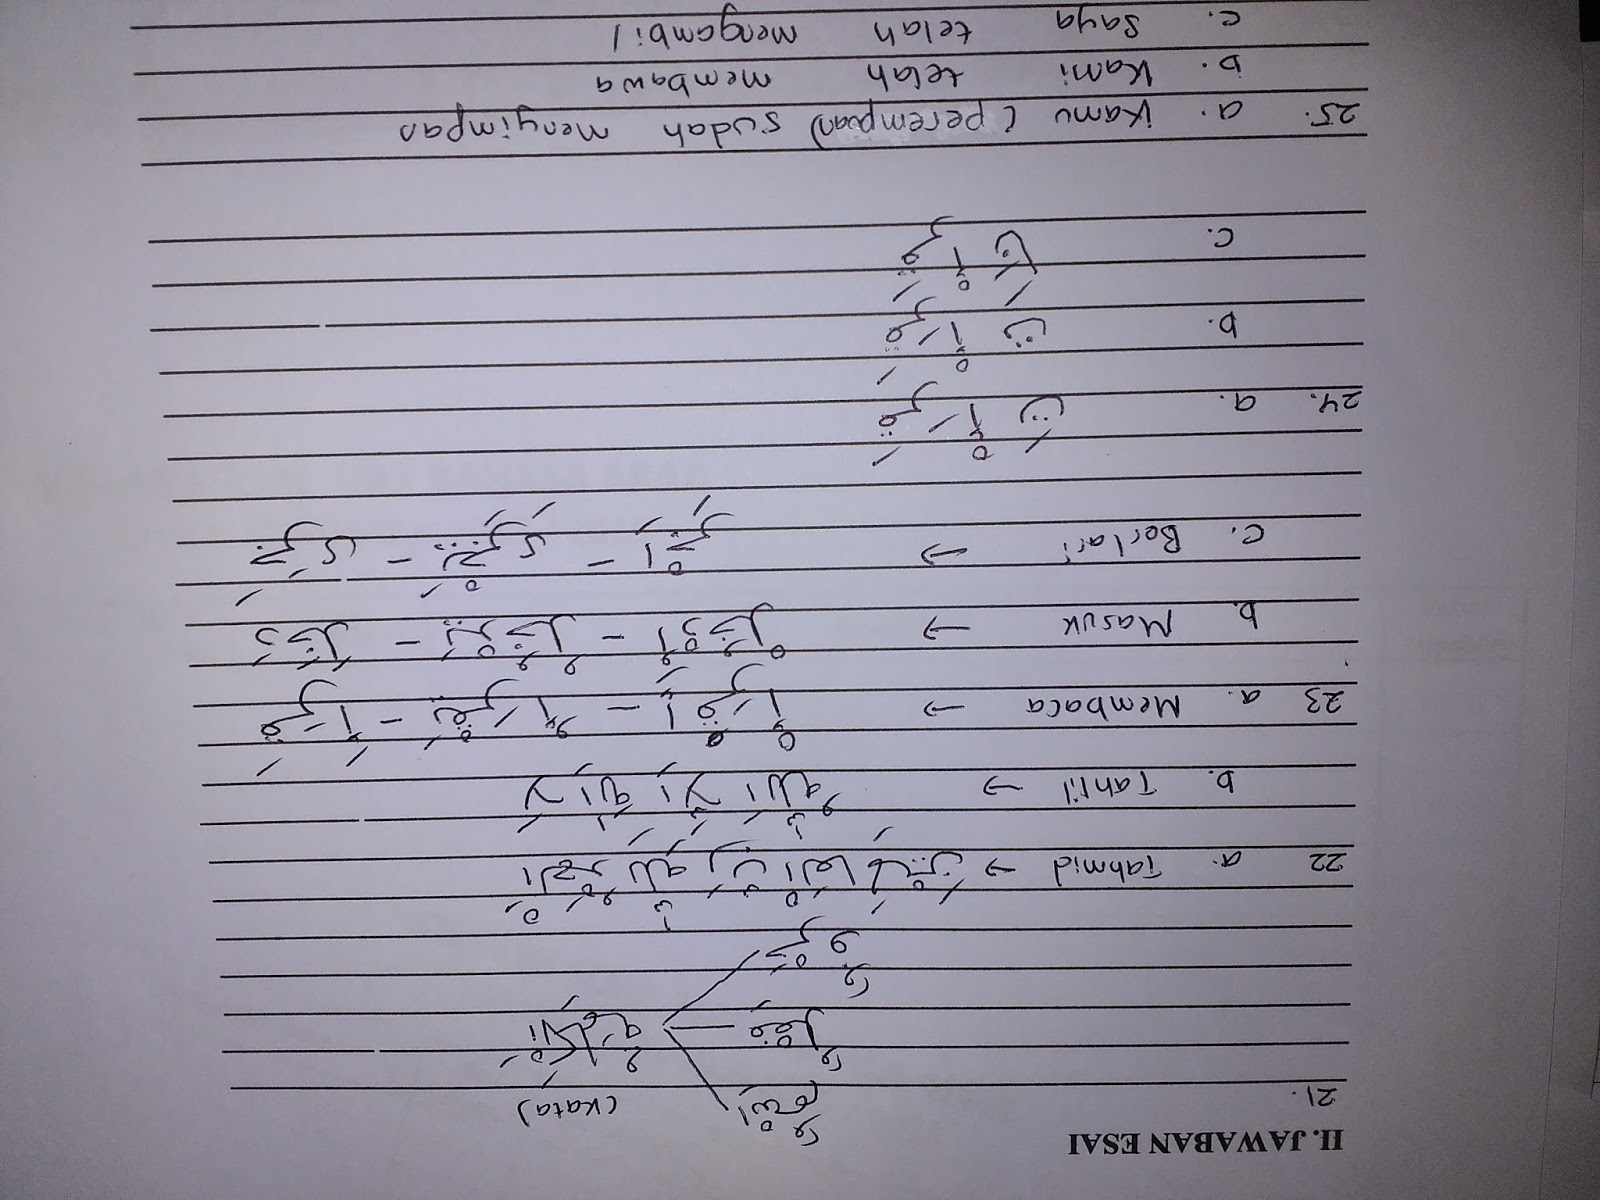 II. JAWABAN ESAI
21. (kata) اسم
الكلمة فعل
حرف
22 a. Tahmid → الحمد لله رب العالمين
b. Tahlil → لا اله الا الله
23 a. Membaca → قرأ - يقرأ - اقرأ
b. Masuk → دخل - يدخل - ادخل
c. Berlari → جرى - يجرى - اجر
24. a. قرأت
b. قرأت
c. قرأنا
25. a. Kamu (perempuan) sudah menyimpan
b. Kami telah membawa
c. Saya telah mengambil